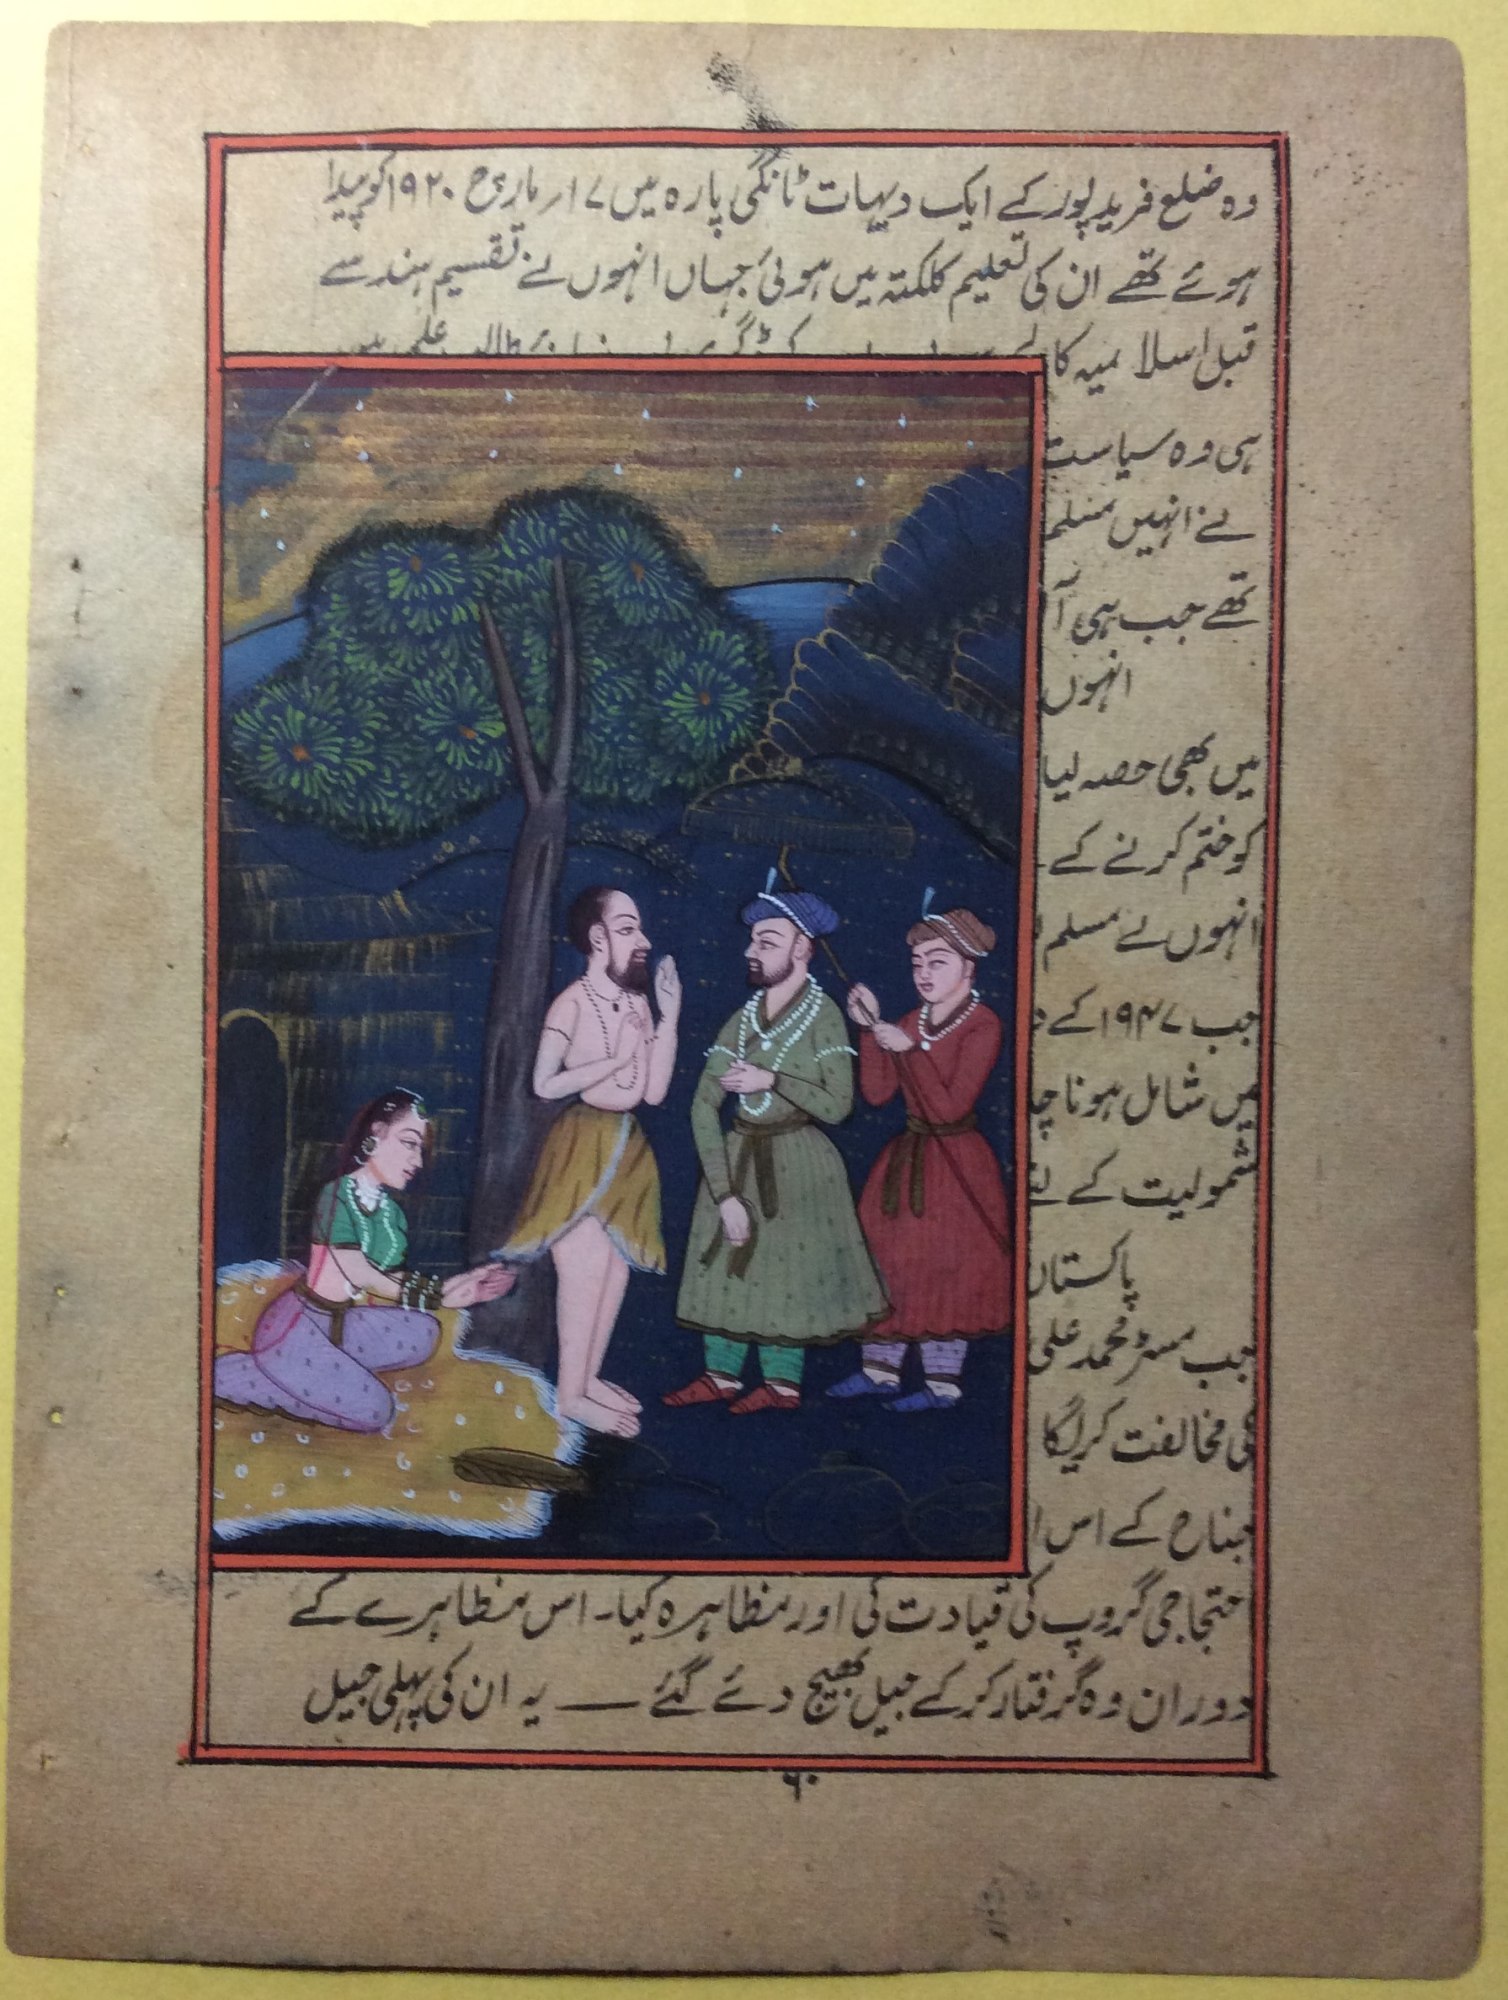 وہ ضلع فرید پور کے ایک دیہات ٹانگی پارہ میں ۱۷ مارچ ۱۹۲۰ کو پیدا
ہوئے تھے ان کی تعلیم کلکتہ میں ہوئی جہاں انہوں نے تقسیم ہند سے
قبل اسلامیہ کا
ہی وہ سیاست
نے انہیں
تھے جب ہی آ
انہوں
میں بھی حصہ لیا
کو ختم کرنے کے
انہوں نے مسلم
جب ۱۹۴۷ کے
میں شامل ہونا چا
شمولیت کے لئے
پاکستان
جب مسٹر محمد علی
کی مخالفت کریگا
جناح کے اس ا
احتجاجی گروپ کی قیادت کی اور مظاہرہ کیا۔ اس مظاہرے کے
دوران وہ گرفتار کر کے جیل بھیج دئے گئے — یہ ان کی پہلی جیل
۶۰